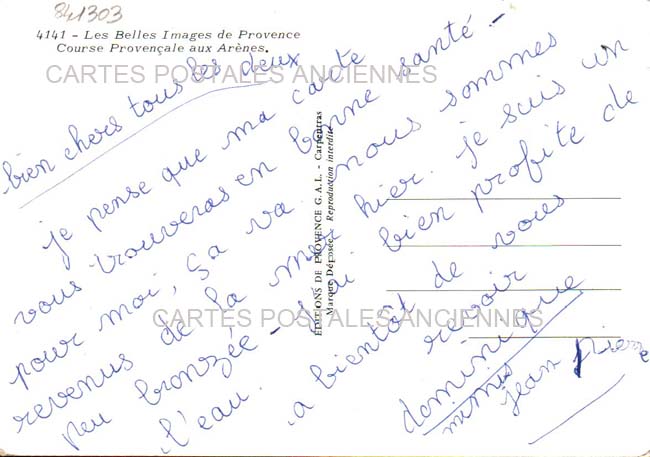 841303
4141 - Les Belles Images de Provence
Course Provençale aux Arènes.
CARTES POSTALES ANCIENNES
bien chers tous les deux
je pense que ma carte
vous trouveras en bonne santé -
pour moi, ça va. nous sommes
revenus de la mer hier. je suis un
peu bronzée - j'ai bien profité de
l'eau. a bientôt de vous
revoir
dominique
mimis
jean Pierre
EDITIONS DE PROVENCE G.A.L. - Carpentras
Marque Déposée. Reproduction interdite
CARTES POSTALES ANCIENNES